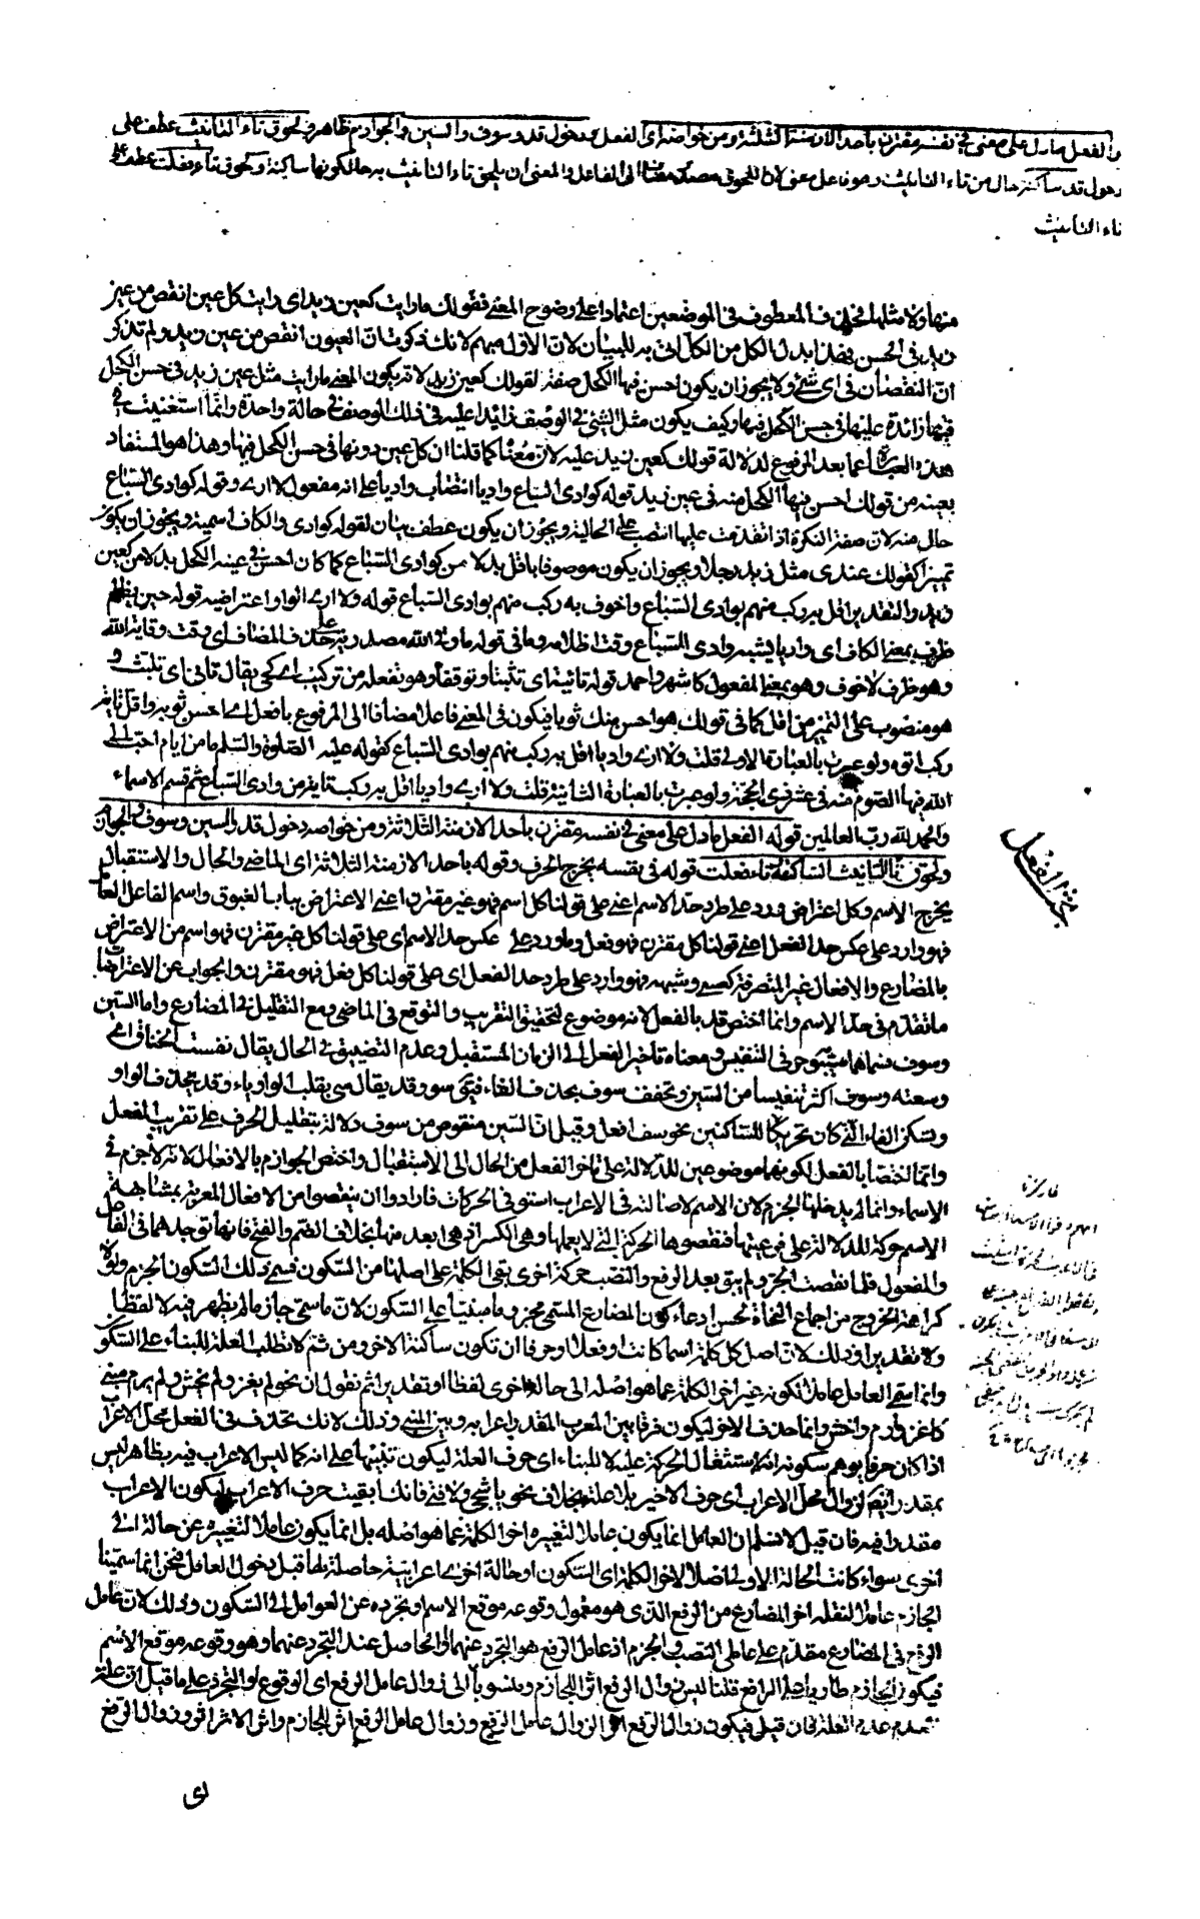 والفعل ما دل على معنى في نفسه مقترن باحد الازمنة الثلثة ومن خواصه اى الفعل دخول قد وسوف والسين والجوازم ظاهر ولحوق تاء التانيث عطف على
دخول قد ساكنة حال من تاء التانيث وهو فاعل معنى لان اللحوق مصدر مضاف الى الفاعل والمعنى ان يلحق تاء التانيث به حال كونها ساكنة ولحوق تاء فعلت عطف على
تاء التانيث
منها ولا مثلها فحذف المعطوف في الموضعين اعتمادا على وضوح المعنى فقولك ما رايت كعين زيد اى رايت كل عين انقص من عين
زيد في الحسن فهذا بدل الكل من الكل اتى به للبيان لان الاول مبهم لانك ذكرت ان العيون انقص من عين زيد ولم تذكر
ان النقصان في اى شئ ولا يجوز ان يكون احسن فيها الكحل صفة لقولك كعين زيد لانه يكون المعنى ما رايت مثل عين زيد في حسن الكحل
فيها زائدة عليها في حسن الكحل فيها وكيف يكون مثل الشئ في الوصف زائدا عليه في ذلك الوصف في حالة واحدة وانما استغنيت في
هذه العبارة عما بعد المرفوع لدلالة قولك كعين زيد عليه لان معناه كما قلنا ان كل عين دونها في حسن الكحل فيها وهذا هو المستفاد
بعينه من قولك احسن فيها الكحل منه في عين زيد قوله كوادى السباع واديا انتصاب واديا على انه مفعول لا ارى وقوله كوادى السباع
حال منه لان صفة النكرة اذا تقدمت عليها انتصب على الحالية ويجوز ان يكون عطف بيان لقوله كوادى والكاف اسمية ويجوز ان يكون
تميزا كقولك عندى مثل زيد رجلا ويجوز ان يكون موصوفا باقل بدلا من كوادى السباع كما كان احسن في عينه الكحل بدلا من كعين
زيد والتقدير اقل به ركب منهم بوادى السباع واخوف به ركب منهم بوادى السباع قوله ولا ارى الواو اعتراضية قوله حين يظلم
ظرف بمعنى الكاف اى واديا يشبه وادى السباع وقت اظلامه وما في قوله ما وقى الله مصدرية على حذف المضاف اى وقت وقاية الله
وهو ظرف لاخوف وهو بمعنى المفعول كاشهر واحمد قوله تائية اى تثبتا وتوقفا وهو تفعلة من تركيب اى يقال تاني اى تلبث و
هو منصوب على التميز من اقل كما في قولك هو احسن منك ثوبا فيكون في المعنى فاعلا مضافا الى المرفوع بافعل اى احسن ثوبه واقل تائية
ركب اتوه ولو عبرت بالعبارة الاولى قلت ولا ارى واديا اقل به ركب منهم بوادى السباع كقوله عليه الصلوة والسلم ما من ايام احب الى
الله فيها الصوم منه في عشر ذى الحجة ولو عبرت بالعبارة الثانية قلت ولا ارى واديا اقل به ركب تاية من وادى السباع تم قسم الاسماء
والحمد لله رب العالمين قوله الفعل ما دل على معنى في نفسه مقترن باحد الازمنة الثلاثة ومن خواصه دخول قد والسين وسوف والجوازم
ولحوق تاء التانيث الساكنة وتاء فعلت قوله في نفسه يخرج الحرف وقوله باحد الازمنة الثلاثة اى الماضى والحال والاستقبال
يخرج الاسم وكل اعتراض ورد على طرد حد الاسم اعنى على قولنا كل اسم فهو غير مقترن اعنى الاعتراض بباب الغبوق واسم الفاعل العامل
فهو وارد على عكس حد الفعل اعنى قولنا كل مقترن فهو فعل وما ورد على عكس حد الاسم اى على قولنا كل غير مقترن فهو اسم من الاعتراض
بالمضارع والافعال غير المتصرفة كعسى وشبهه فهو وارد على طرد حد الفعل اى على قولنا كل فعل فهو مقترن والجواب عن الاعتراضات
ما تقدم في حد الاسم وانما اختص قد بالفعل لانه موضوع لتحقيق التقريب والتوقع في الماضى ومع التقليل في المضارع واما السين
وسوف فسماهما سيبويه حرفي التنفيس ومعناه تاخير الفعل الى الزمان المستقبل وعدم التضييق في الحال يقال نفست الخناق اى
وسعته وسوف اكثر تنفيسا من السين وتخفف سوف بحذف الفاء فيبقى سو وقد يقال سى بقلب الواو ياء وقد يحذف الواو
وتسكن الفاء التى كان تحريكها للساكنين نحو سف افعل وقيل ان السين منقوص من سوف دلالة بتقليل الحرف على تقريب الفعل
وانما اختصا بالفعل لكونهما موضوعين للدلالة على تاخر الفعل من الحال الى الاستقبال واختص الجوازم بالافعال لانه لا جزم في
الاسماء وانما لم يدخلها الجزم لان الاسم لاصالته في الاعراب استوفى الحركات فارادوا ان ينقصوا من الافعال المعربة بمشابهة
الاسم حركة للدلالة على فرعيتها فنقصوها الحركة التى لا يعملها وهى الكسر اذ هى ابعد منها بخلاف الضم والفتح فانها توجدهما في الفاعل
والمفعول فلما نقصت الجر ولم يبق بعد الرفع والنصب حركة اخرى بقى الكلمة على اصلها من السكون فسمى ذلك السكون الجزم ولولا
كراهة الخروج من اجماع النحاة لحسن ادعاء كون المضارع المسمى مجزوما مبنيا على السكون لان ما سمى جازما لم يظهر فيه لا لفظا
ولا تقديرا وذلك لان اصل كل كلمة اسما كانت او فعلا او حرفا ان تكون ساكنة الاخر ومن ثم لا تطلب العلة للبناء على السكون
وانما سمى العامل عاملا لكونه غير آخر الكلمة عما هو اصله الى حالة اخرى لفظا او تقديرا ثم نقول ان نحو لم يغز ولم يخش ولم يرم مبنى
كاغز وارم واخش وانما حذف الاخر ليكون فرقا بين المعرب المقدر اعرابه وبين المبنى وذلك لانك تحذف في الفعل محل الاعراب
اذا كان حرفا يوهم سكونه انه لاستثقال الحركة عليه لا للبناء اى حرف العلة ليكون تنبيها على انه كما ليس الاعراب فيه بظاهر ليس
بمقدر ايضا لزوال محل الاعراب اى حرف الاخير بلا علة بخلاف نحو يا شجى ولا فتى فانك ابقيت حرف الاعراب ليكون الاعراب
مقدرا فيه فان قيل لا نسلم ان العامل انما يكون عاملا لتغييره اخر الكلمة عما هو اصله بل انما يكون عاملا لتغييره عن حالة الى
اخرى سواء كانت الحالة الاولى اصلا لاخر الكلمة اى السكون او حالة اخرى اعرابية حاصلة لها قبل دخول العامل فنحن انما سمينا
الجازم عاملا لنقله اخر المضارع من الرفع الذى هو معمول وقوعه موقع الاسم او تجرده عن العوامل الى السكون وذلك لان عامل
الرفع في المضارع مقدم على عاملى النصب والجزم اذ عامل الرفع هو التجرد عنهما والحاصل عند التجرد عنهما وهو وقوعه موقع الاسم
فيكون الجازم طاريا على الرافع قلنا ليس زوال الرفع اثر الجازم ومنسوبا الى زوال عامل الرفع اى الوقوع او التجرد على ما قيل ان علة
العدم عدم العلة فان قيل فيكون زوال الرفع اثر الزوال عامل الرفع وزوال عامل الرفع اثر الجازم واثر الاثر اثر وزوال الرفع
اى
بحث الفعل
فائدة